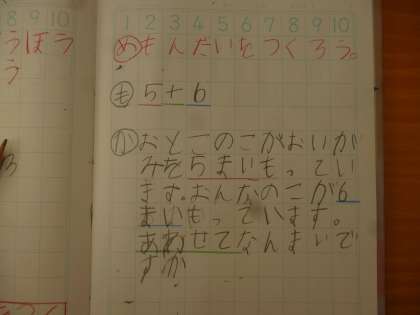 8 9 10
うぼう
う
1 2 3 4 5 6 7 8 9 10
めもんだいをつくろう。
も 5+6
か おとこのこがおりが
みを5まいもってい
ます。おんなのこが6
まいもっています。
あわせてなんまいで
すか